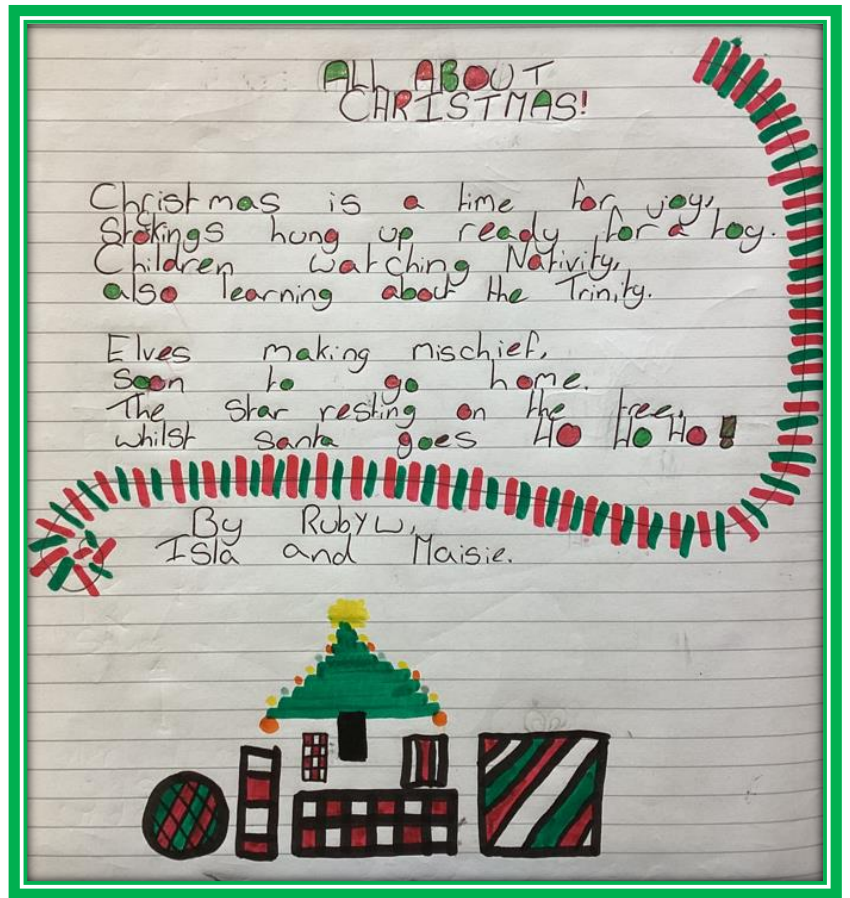 ALL ABOUT
CHRISTMAS!
Christmas is a time for joy,
Stokings hung up ready for a toy.
Children watching Nativity,
also learning about the Trinity.
Elves making mischief,
soon to go home.
The star resting on the tree,
whilst santa goes HO HO HO!
By Ruby W,
Isla and Maisie.